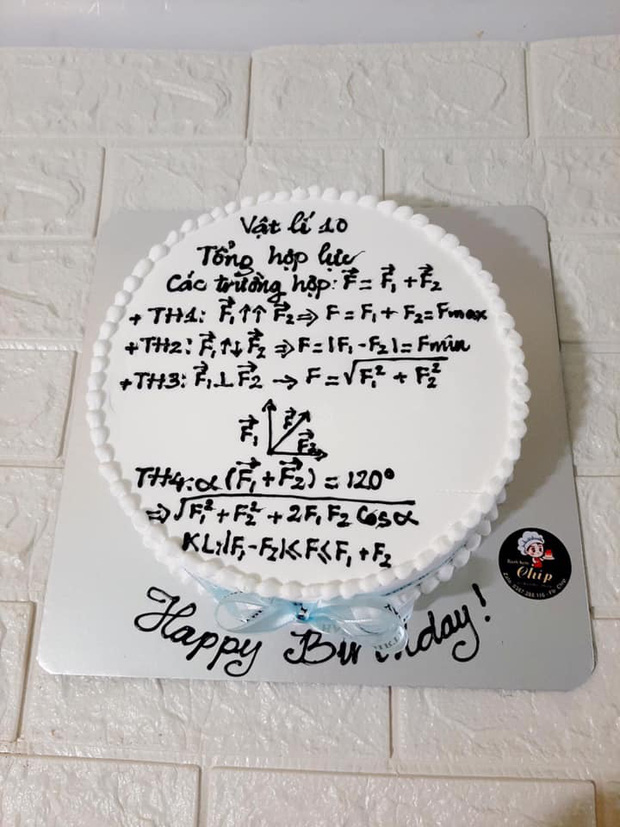 Vật lí 10
Tổng hợp lực
Các trường hợp: F⃗ = F⃗₁ + F⃗₂
+ TH1: F⃗₁ ↑↑ F⃗₂ ⇒ F = F₁ + F₂ = Fmax
+ TH2: F⃗₁ ↑↓ F⃗₂ ⇒ F = |F₁ - F₂| = Fmin
+ TH3: F⃗₁ ⊥ F⃗₂ → F = √(F₁² + F₂²)
F⃗₁ F⃗ F⃗₂
TH4: α (F⃗₁ + F⃗₂) = 120°
⇒ √(F₁² + F₂² + 2F₁ F₂ Cos α)
KL: |F₁ - F₂| ≤ F ≤ F₁ + F₂
Chip
Happy Birthday!